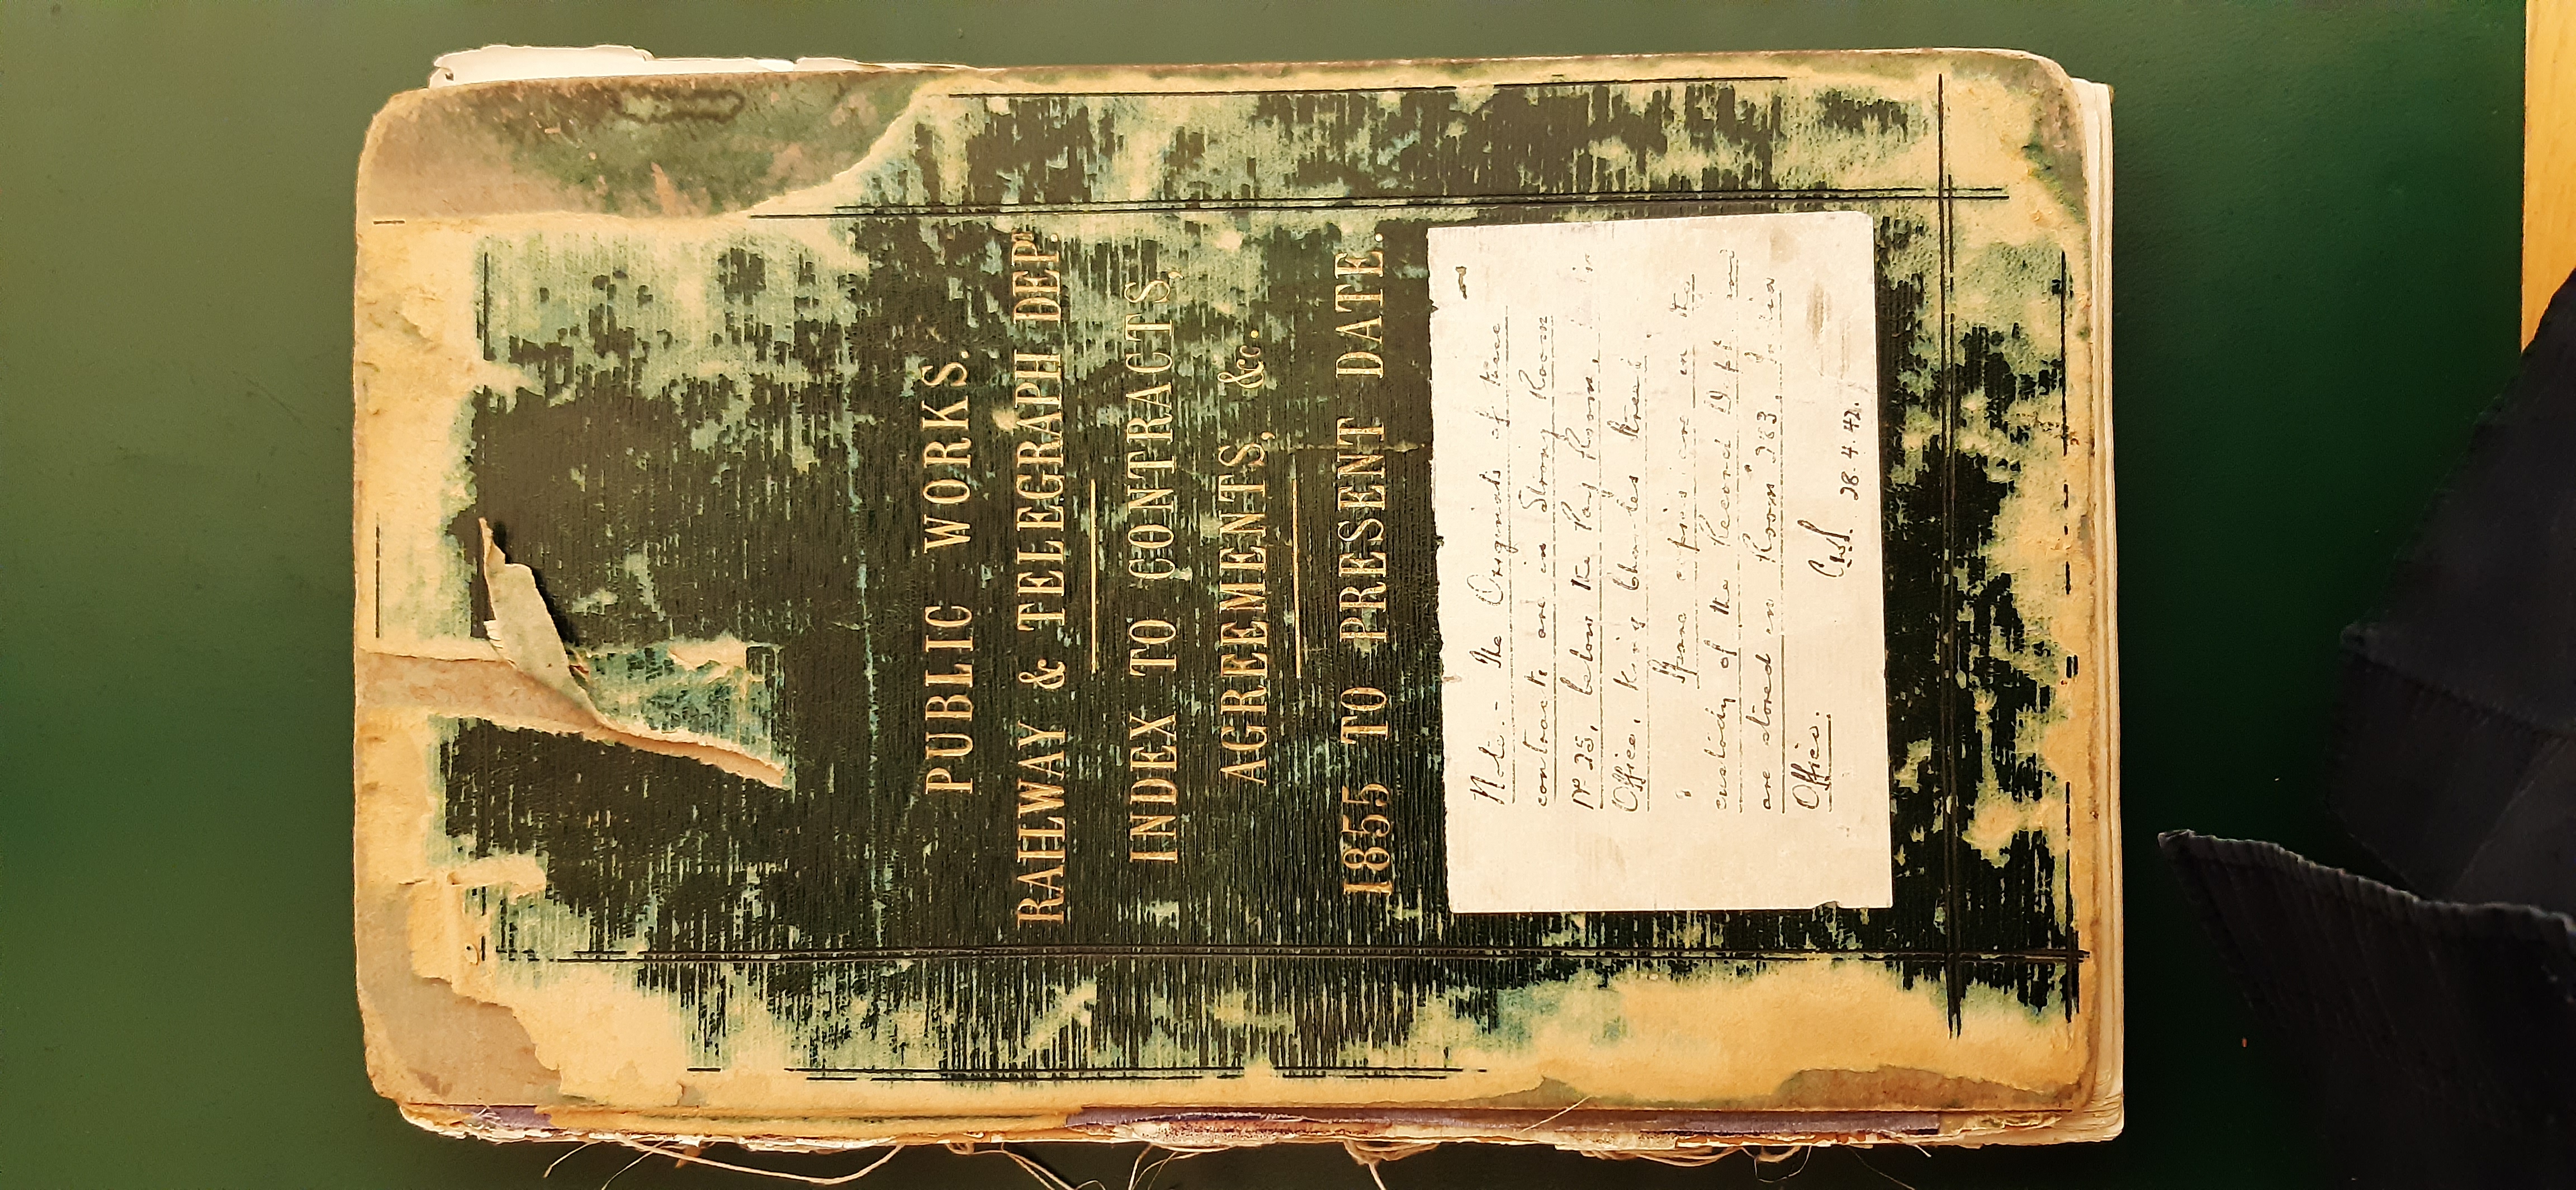 PUBLIC WORKS.
RAILWAY & TELEGRAPH DEPT.
INDEX TO CONTRACTS,
AGREEMENTS, &c.
1855 TO PRESENT DATE.
Note:- The Originals of these
contracts are in Strong Room
No 25, below the Pay Room, in
Office, King Charles Street.
Spare copies are in the
custody of the Record Dept. and
are stored in Room 283, India
Office.
28.4.42.